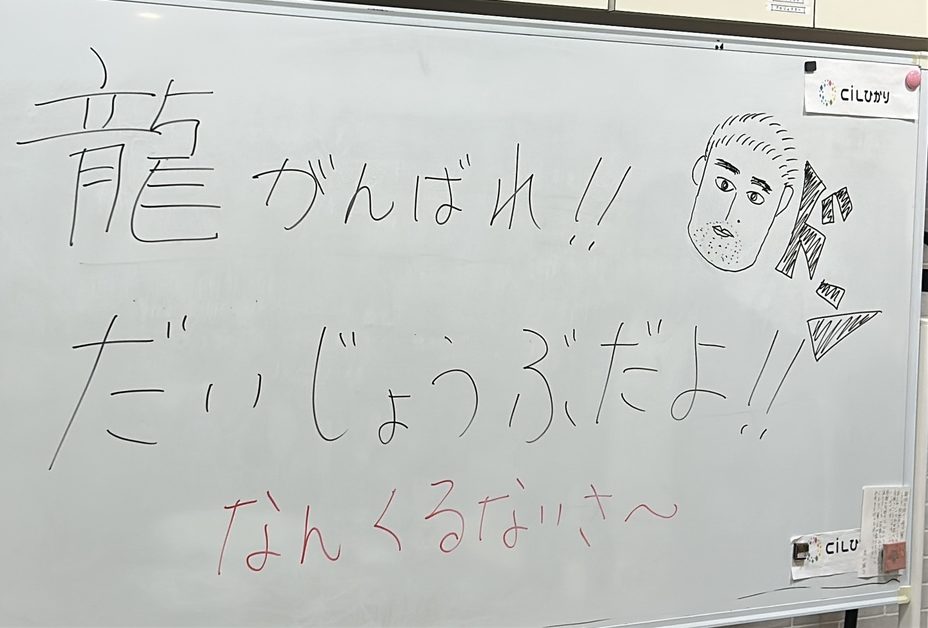 CILひかり
龍がんばれ!!
ド
だいじょうぶだよ!!
なんくるないさ〜
CILひ